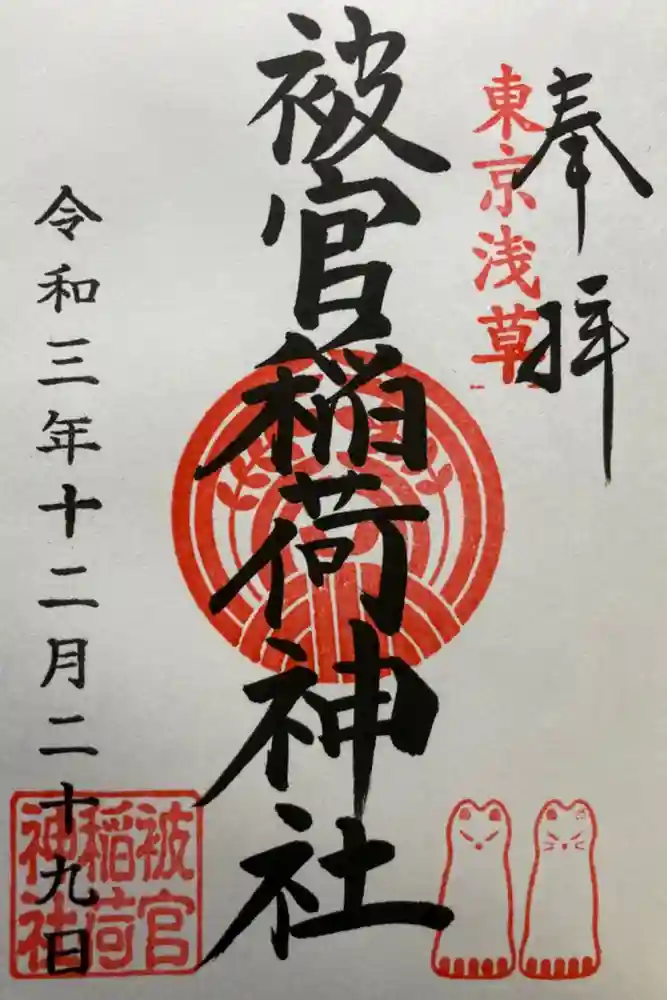 奉拝
東京浅草
被官稲荷神社
令和三年十二月二十九日
被官
稲荷
神社